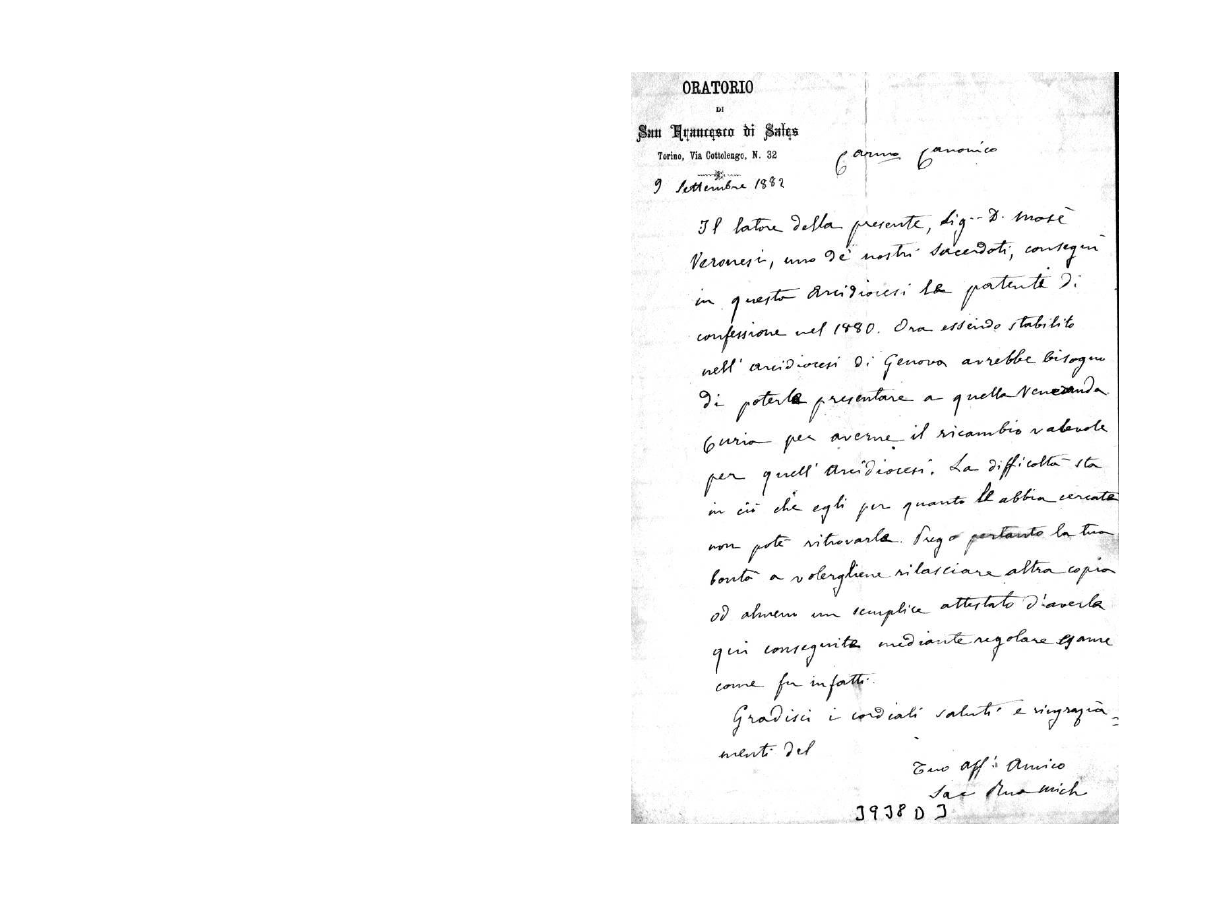 ORATORIO
DI
San Francesco di Sales
Torino, Via Cottolengo, N. 32
9 Settembre 1882
Carmo Canonico
Il latore della presente, Sig.- D. Mosè
Veronesi, uno de' nostri Sacerdoti, conseguì
in questa Arcidiocesi la patente di
confessione nel 1880. Ora essendo stabilito
nell' arcidiocesi di Genova avrebbe bisogno
di poterla presentare a quella Veneranda
Curia per averne il ricambio valevole
per quell' Arcidiocesi. La difficoltà sta
in ciò che egli per quanto l'abbia cercata
non potè ritrovarla. Prego pertanto la tua
bontà a volergliene rilasciare altra copia
od almeno un semplice attestato d'averla
qui conseguita mediante regolare esame
come fu infatti.
Gradisci i cordiali saluti e ringrazia=
menti del
Tuo aff.: Amico
Sac Rua Mich
3938 D 3